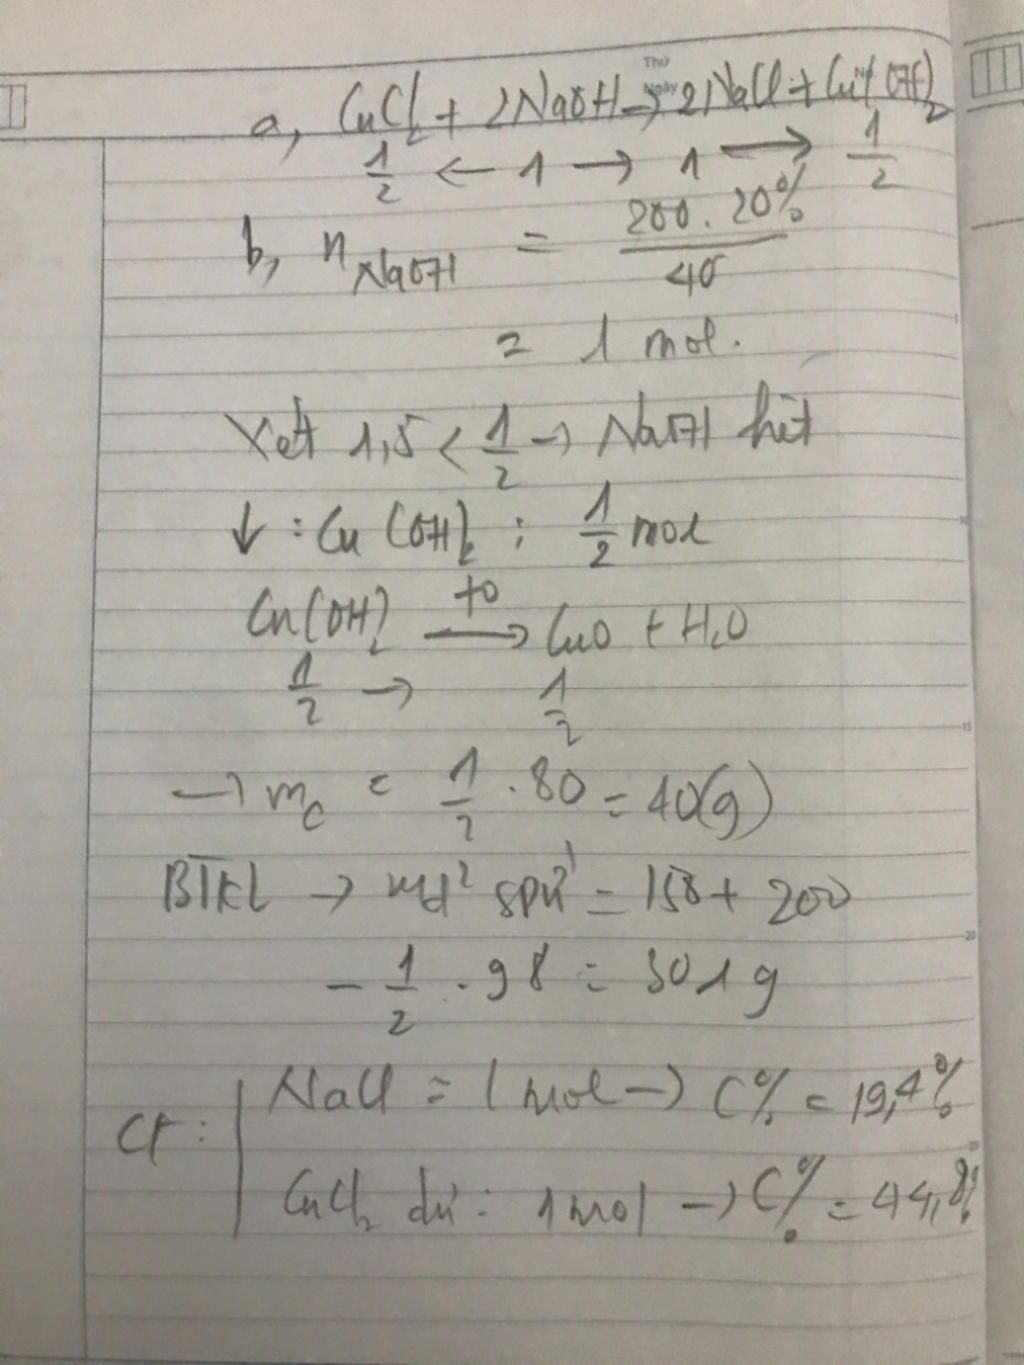 Thứ
Ngày No.
a, CuCl2 + 2NaOH → 2NaCl + Cu(OH)2
1/2 ← 1 → 1 → 1/2
b, n NaOH = 200.20% / 40
= 1 mol.
Xét 1,5 < 1/2 → NaOH hết
↓ : Cu(OH)2 : 1/2 mol
Cu(OH)2 →(t0) CuO + H2O
1/2 → 1/2
→ mc = 1/2 . 80 = 40(g)
BTKL → md2 spứ = 158 + 200
- 1/2 . 98 = 301g
CT : NaCl = 1 mol → C% = 19,4%
CuCl2 dư : 1 mol → C% = 44,8%